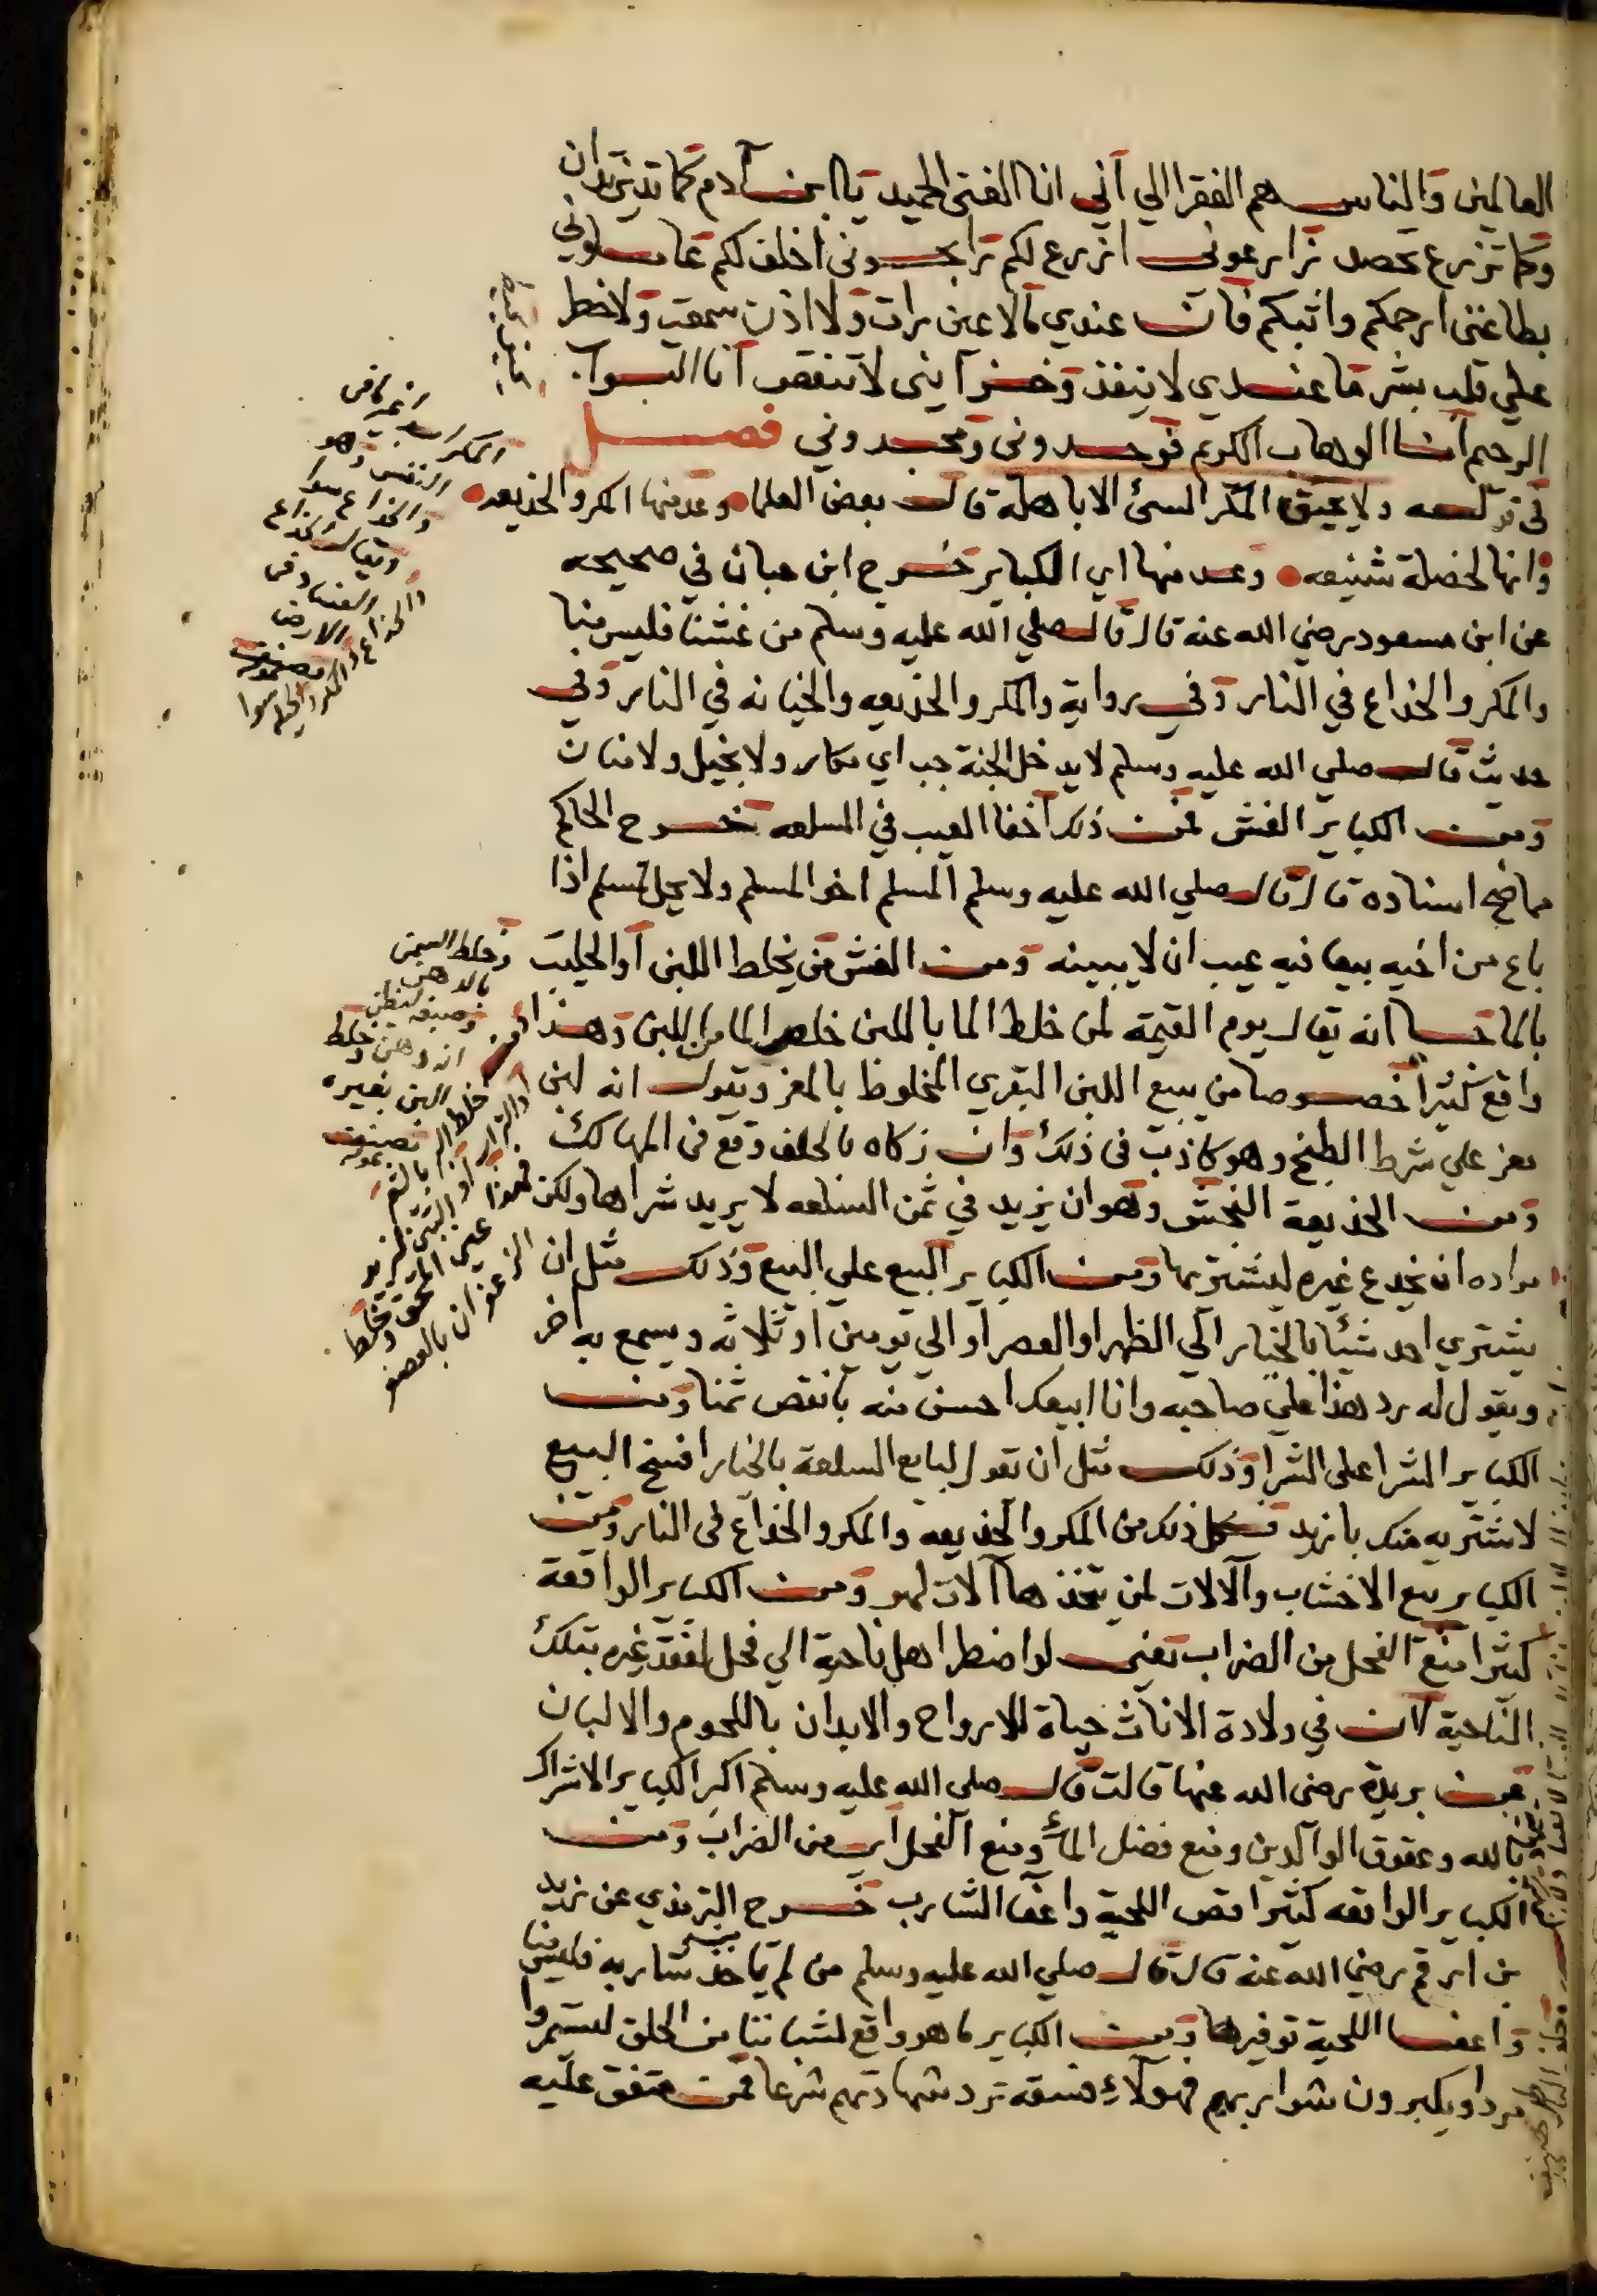 العالمين والناس هم الفقرا الي اني انا الغني الحميد يا ابن آدم كما تدين تدان
وكما تزرع تحصد زارعوني ازرع لكم رابحوني اخلف لكم عاملوني
بطاعتي ارحمكم واثيبكم فان عندي مالا عين رات ولا اذن سمعت ولا خطر
علي قلب بشر ما عندي لا ينفذ وخزآيني لا تنقص انا التواب
الرحيم انا الوهاب الكريم فوحدوني ومجدوني فصل
في قوله ولا يحيق المكر السئ الا باهله قال بعض العلما وعد منها المكر والخذيعه
وانها لخصلة شنيعه وعد منها اي الكباير خرج ابن حبان في صحيحه
عن ابن مسعود رضي الله عنه قال قال صلي الله عليه وسلم من غشنا فليس منا
والمكر والخداع في النار وفي رواية والمكر والخذيعه والخيانه في النار وفي
حديث قال صلي الله عليه وسلم لا يدخل الجنة خب اي مكار ولا بخيل ولا منان
ومن الكباير الغش فمن ذلك اخفا العيب في السلعه خرج الحاكم
مما صح اسناده قال قال صلي الله عليه وسلم المسلم اخو المسلم ولا يحل لمسلم اذا
باع من اخيه بيعا فيه عيب ان لا يبينه ومن الغش من يخلط اللبن او الحليب
بالما انه يقال يوم القيمة لمن خلط الما باللبن خلص الما من اللبن وهذا
واقع كثيرا خصوصا من يبيع اللبن البقري المخلوط بالمعز ويقول انه لبن
معز علي شرط الطبخ وهو كاذب في ذلك وان زكاه بالحلف وقع في المهالك
ومن الخذيعة النجش وهو ان يزيد في ثمن السلعه لا يريد شراها ولكن
مراده ان يخدع غيره ليشتريها ومن الكباير البيع علي البيع وذلك مثل ان
يشتري احد شيئا بالخيار الي الظهر او العصر او الي يومين او ثلاثه ويسمع به اخر
ويقول له رد هذا علي صاحبه وانا ابيعك احسن منه بانقص ثمنا ومن
الكباير الشرا علي الشرا وذلك مثل ان تقول لبايع السلعة بالخيار افسخ البيع
لاشتريه منك بازيد فكل ذلك من المكر والخذيعه والمكر والخداع في النار ومن
الكباير بيع الاخشاب والآلات لمن يتخذها آلات لهو ومن الكباير الواقعة
كثيرا منع الفحل من الضراب يعني لو اضطر اهل ناحية الي فحل لفقد غيره بتلك
الناحية لان في ولادة الاناث حياة للارواح والابدان باللحوم والالبان
فعن بريدة رضي الله عنها قالت قال صلي الله عليه وسلم اكبر الكباير الاشراك
بالله وعقوق الوالدين ومنع فضل الماء ومنع الفحل اي من الضراب ومن
الكباير الواقعه كثيرا قص اللحية واعفا الشارب خرج الترمذي عن زيد
بن ارقم رضي الله عنه قال قال صلي الله عليه وسلم من لم ياخذ من شاربه فليس منا
واعفا اللحية توفيرها ومن الكباير ما هو واقع لشبابنا من الحلق ليستمروا
مردا ويكبرون شواربهم فهولآء فسقه ترد شهادتهم شرعا فمن متفق عليه
المكر
النفس وهو
والخداع سوا
ويقال الخداع
الفساد في
الارض
والخداع والمكر والحيله سوا
وخلط السمن
بالدهن
انه دهن وخلط
البن بغيره
الزعفران بالعصفر